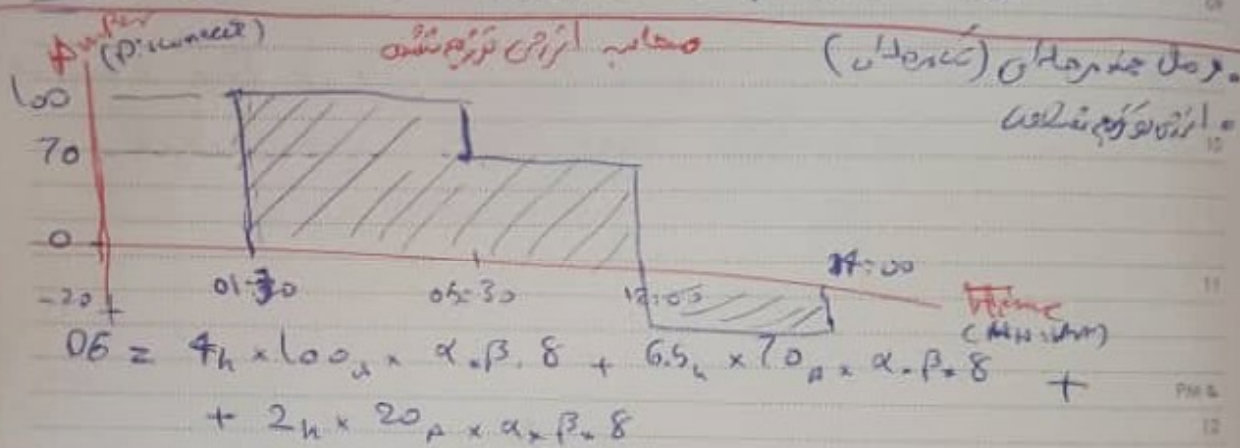 Amper
(Disconnect)
محاسبه انرژی توزیع نشده
وصل چند مرحله‌ای
انرژی توزیع نشده
100
70
0
-20
01:30
05:30
12:00
14:00
Time
(HH:MM)
06 = 4h × 100A × α.β.8 + 6.5h × 70A × α.β.8 +
+ 2h × 20A × α × β.8
10
11
PM 6
12